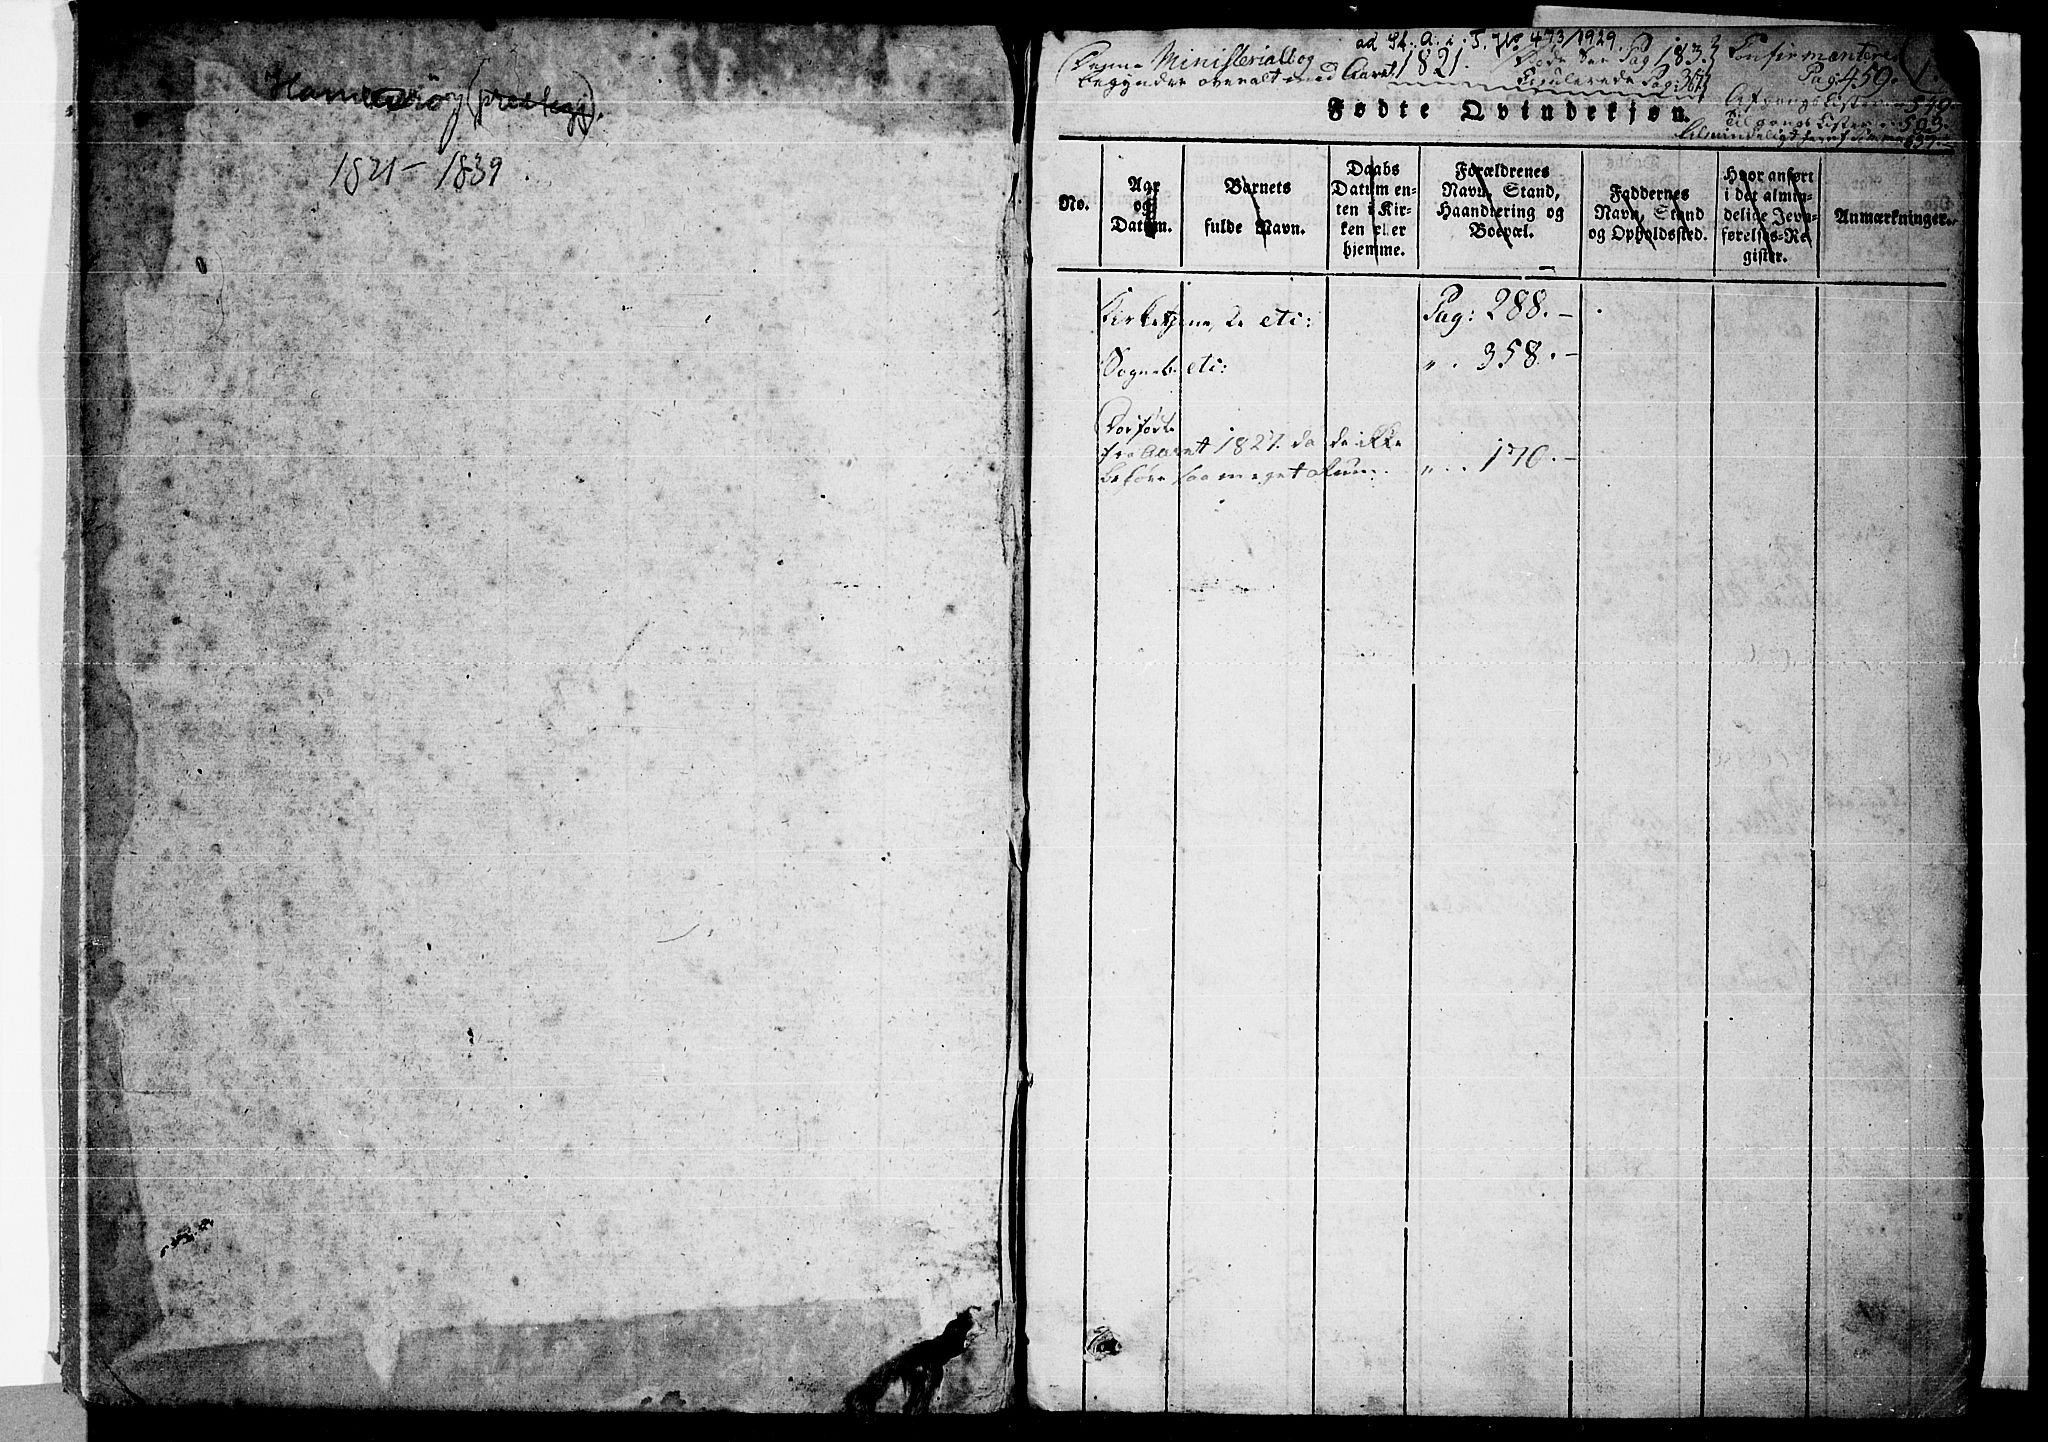 Hammerøy (prestegj).
1821 – 1839
ad St. A. i. T. J No 473/1929.
Denne Ministerialbog
begynder overalt med Aaret 1821.
Døde See Pag 183.
Copulerede Pag: 361
Confirmantere
Pag 459.
1.
Afgangs Listerne 549.
Tilgangs Listerne 593.
Almindeligt 637.
Fødte Qvindekjøn.
No.
Aar og Datum.
Barnets fulde Navn.
Daabs Datum enten i Kirken eller hjemme.
Forældrenes Navn, Stand, Haandtering og Boepæl.
Faddernes Navn, Stand og Opholdssted.
Hvor anført i det almindelige Jevnførelses-Register.
Anmærkninger.
etc: Pag: 288. –
etc: „ . 358. –
fra Aaret 1827. da de ikke
behøve saa meget Rum. „ . . 170. –